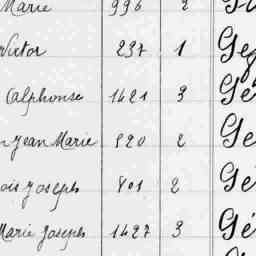 Marie 996 2
Victor 237 1 Ge
Alphonse 1421 3 Gé
Jean Marie 220 2 Ge
ois Joseph 801 2 Gé
Marie Joseph 1427 3 Gé